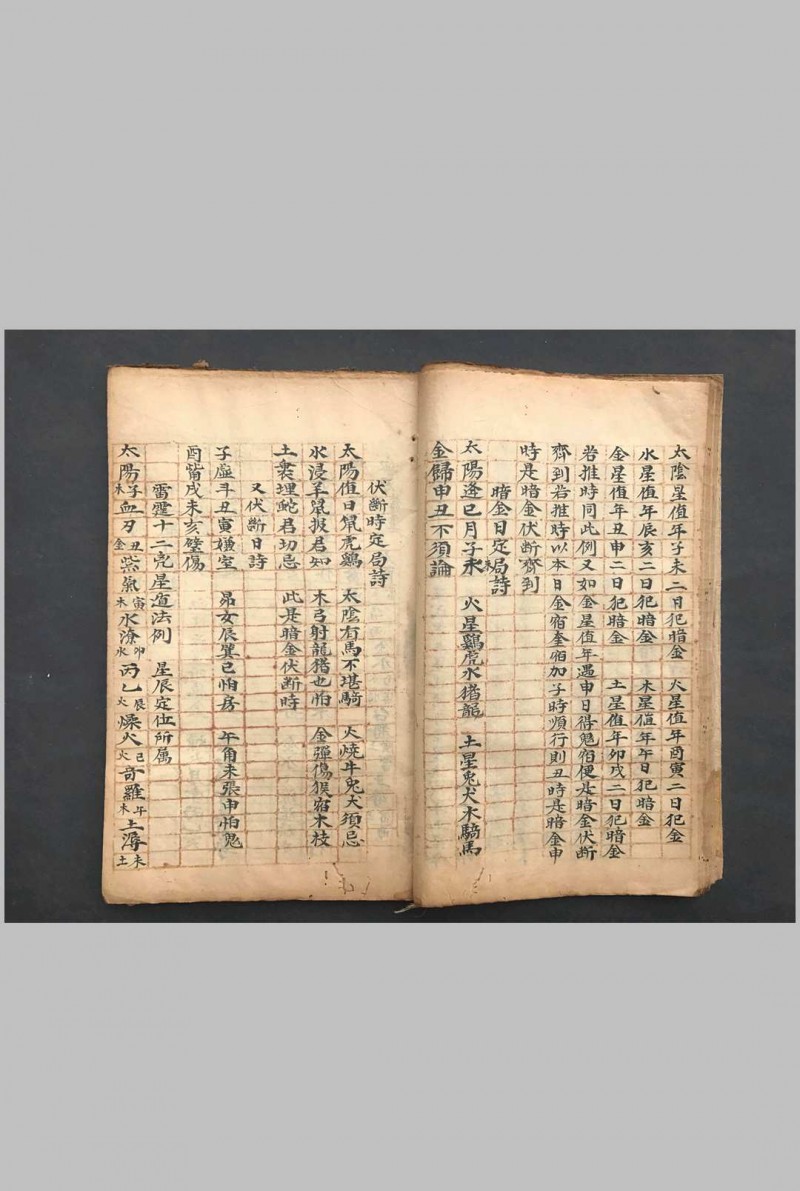 太陰星值年子未二日犯暗金 火星值年酉寅二日犯金
水星值年辰亥二日犯暗金 木星值年午日犯暗金
金星值年丑申二日犯暗金 土星值年卯戌二日犯暗金
若推時同此例又如金星值年遇申日得鬼宿便是暗金伏断
齊到若推時以本日金宿奎宿加子時順行則丑時是暗金申
時是暗金伏断齊到
暗金日定局詩
太陽逢巳月子未 火星鷄虎水猪龍 土星兔犬木騎馬
金歸申丑不須論
伏断時定局詩
太陽值日鼠虎鷄 太陰有馬不堪騎 火燒牛兔犬須忌
水浸羊鼠报君知 木弓射龍猪也怕 金彈傷猴宿木枝
土裏埋蛇君切忌 此是暗金伏断時
又伏断日詩
子虛斗丑寅嫌室 昴女辰箕巳怕房 午角未張申怕鬼
酉觜戌未亥壁傷
雷霆十二売星道法例 星辰定位所属
太陽子木血刃丑金紫氣寅木水潦卯水丙乙辰火燥火巳火奇羅午木土潯未土